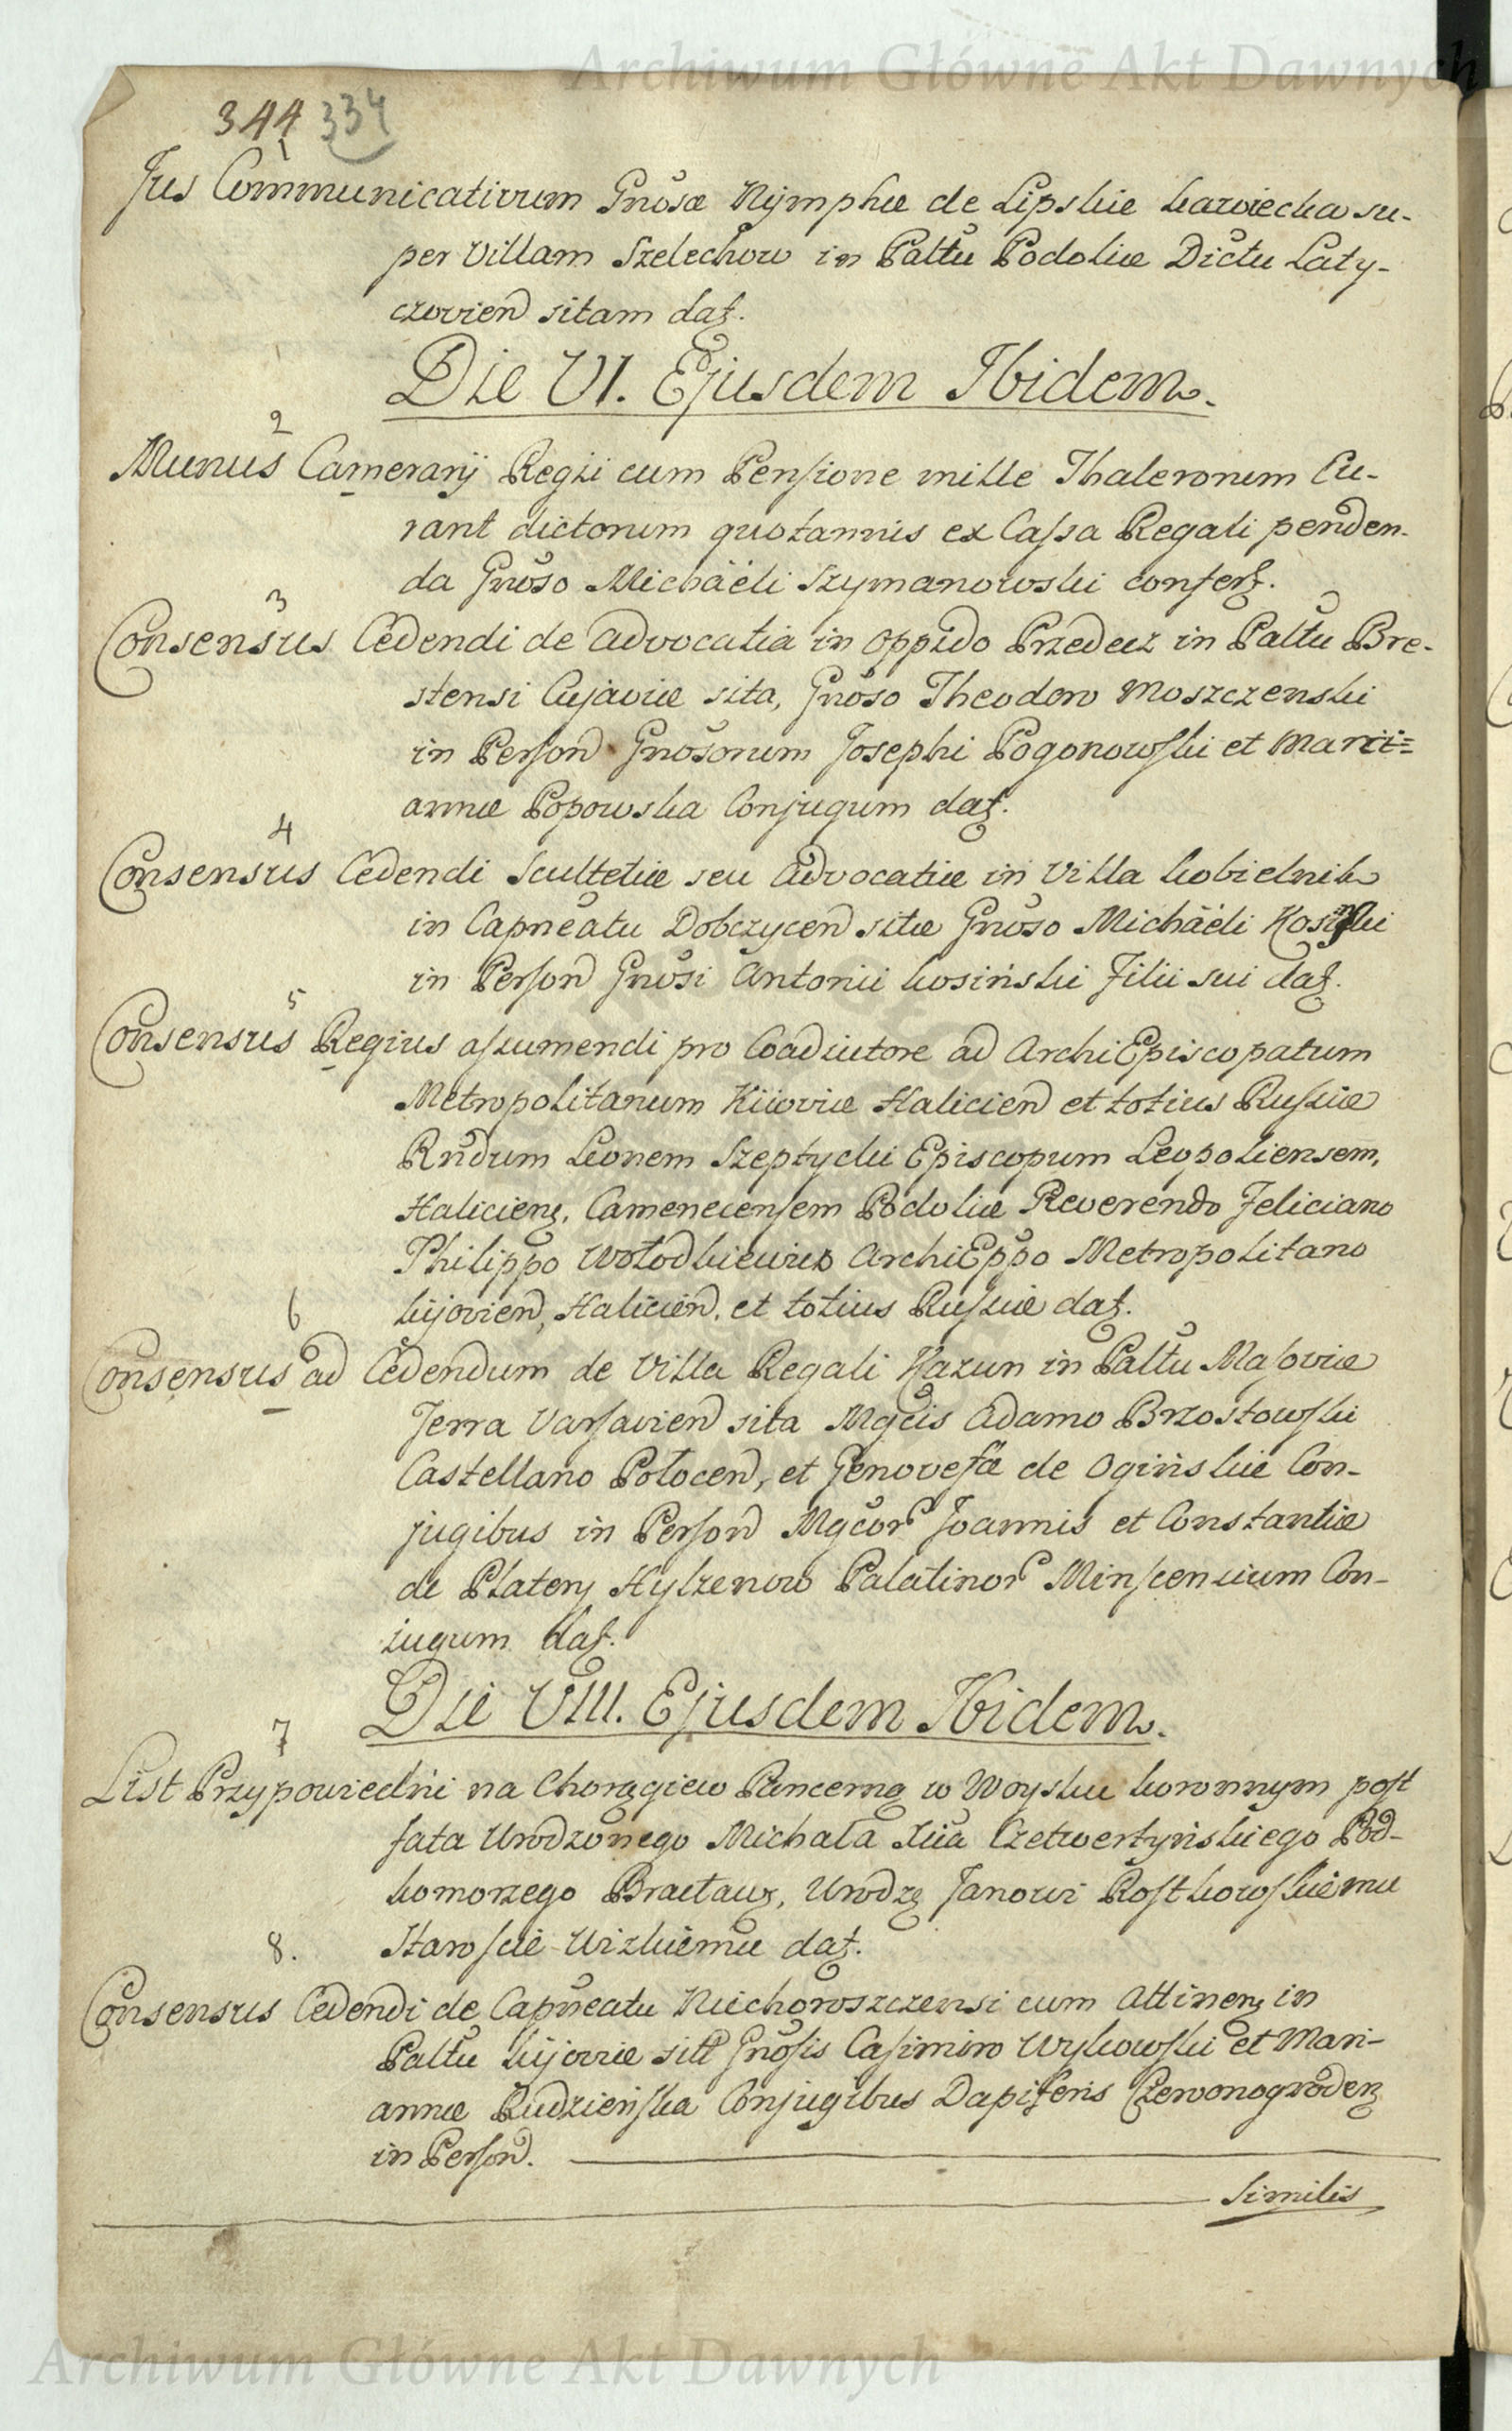 Archiwum Główne Akt Dawnych
344 334
1
Jus Communicativum Gnosæ Nymphæ de Lipskie Karwiecka su-
per Villam Szelechow in Paltu Podoliæ Dictu Laty-
czovien sitam dat.
Die VI. Ejusdem Ibidem.
2
Munus Camerarij Regii cum Pensione mille Thaleronum Cu-
rant dictorum quotannis ex Cassa Regali penden-
da Gnoso Michaëli Szymanowski confert.
3
Consensus Cedendi de Advocatia in Oppido Przedecz in Paltu Bre-
stensi Cujaviæ sita, Gnoso Theodoro Moszczenski
in Person Gnosorum Josephi Pogonowski et Mari=
annæ Popowska Conjugum dat.
4
Consensus Cedendi Scultetiæ seu Advocatiæ in Villa Kobielnik
in Capneatu Dobczycen sitæ Gnoso Michaëli Kosinski
in Person Gnosi Antonii Kosiński Filii sui dat.
5
Consensus Regius assumendi pro Coadiutore ad ArchiEpiscopatum
Metropolitanum Kiioviæ Halicien et totius Russiæ
Rndum Leonem Szeptycki Episcopum Leopoliensem,
Haliciens, Camenecensem Podoliæ Reverendo Feliciano
Philippo Wołodkiewicz ArchiEppo Metropolitano
Kijovien, Halicien. et totius Russiæ dat.
6
Consensus ad Cedendum de Villa Regali Kazun in Paltu Masoviæ
Terra Varsavien sita Mgcis Adamo Brzostowski
Castellano Połocen, et Genovefæ de Ogińskie Con-
jugibus in Person Mgcor Joannis et Constantiæ
de Platery Hylzenow Palatinor Minscensium Con-
iugum dat.
Die VIII. Ejusdem Ibidem.
7
List Przypowiedni na Chorągiew Pancerną w Woysku koronnym post
fata Urodzonego Michała Xcia Czetwertyńskiego Pod-
komorzego Bracław, Urodz Janowi Rostkowskiemu
8. Staroscie Wizkiemu dat.
Consensus Cedendi de Capneatu Niechoroszczensi cum Attinen in
Paltu Kijoviæ sitt Gnosis Casimiro Wykowski et Mari-
annæ Rudzieńska Conjugibus Dapiferis Czerwonogroden
in Person.
Similis
Archiwum Główne Akt Dawnych